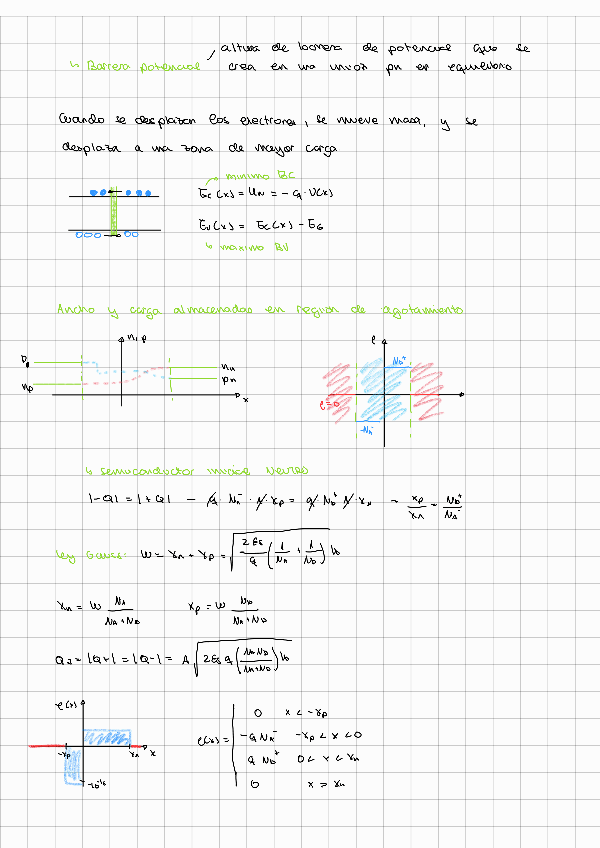 altura de barrera de potencial que se
↳ Barrera potencial crea en una unión pn en equilibrio
Cuando se desplazan los electrones, se mueve masa, y se
desplaza a una zona de mayor carga
mínimo BC
Ec(x) = Un = -q·V(x)
Ev(x) = Ec(x) - EG
↳ máximo BV
Ancho y carga almacenadas en región de agotamiento
n, p
ρ
Pp
nn
np
pn
x
ND+
ρ=0
-NA-
↳ semiconductor sigue neutro
|-Q| = |+Q| → q·NA-·A·xp = q·ND+·A·xn → xp/xn = ND+/NA-
Ley Gauss: W = xn + xp = √(2εs/q (1/NA + 1/ND) V0)
xn = W NA/(NA+ND) xp = W ND/(NA+ND)
QJ = |Q+| = |Q-| = A √(2εs q (NA ND/(NA+ND)) V0)
ρ(x)
-xp
xn
x
ρ(x) =
0 x < -xp
-q NA- -xp < x < 0
q ND+ 0 < x < xn
0 x > xn